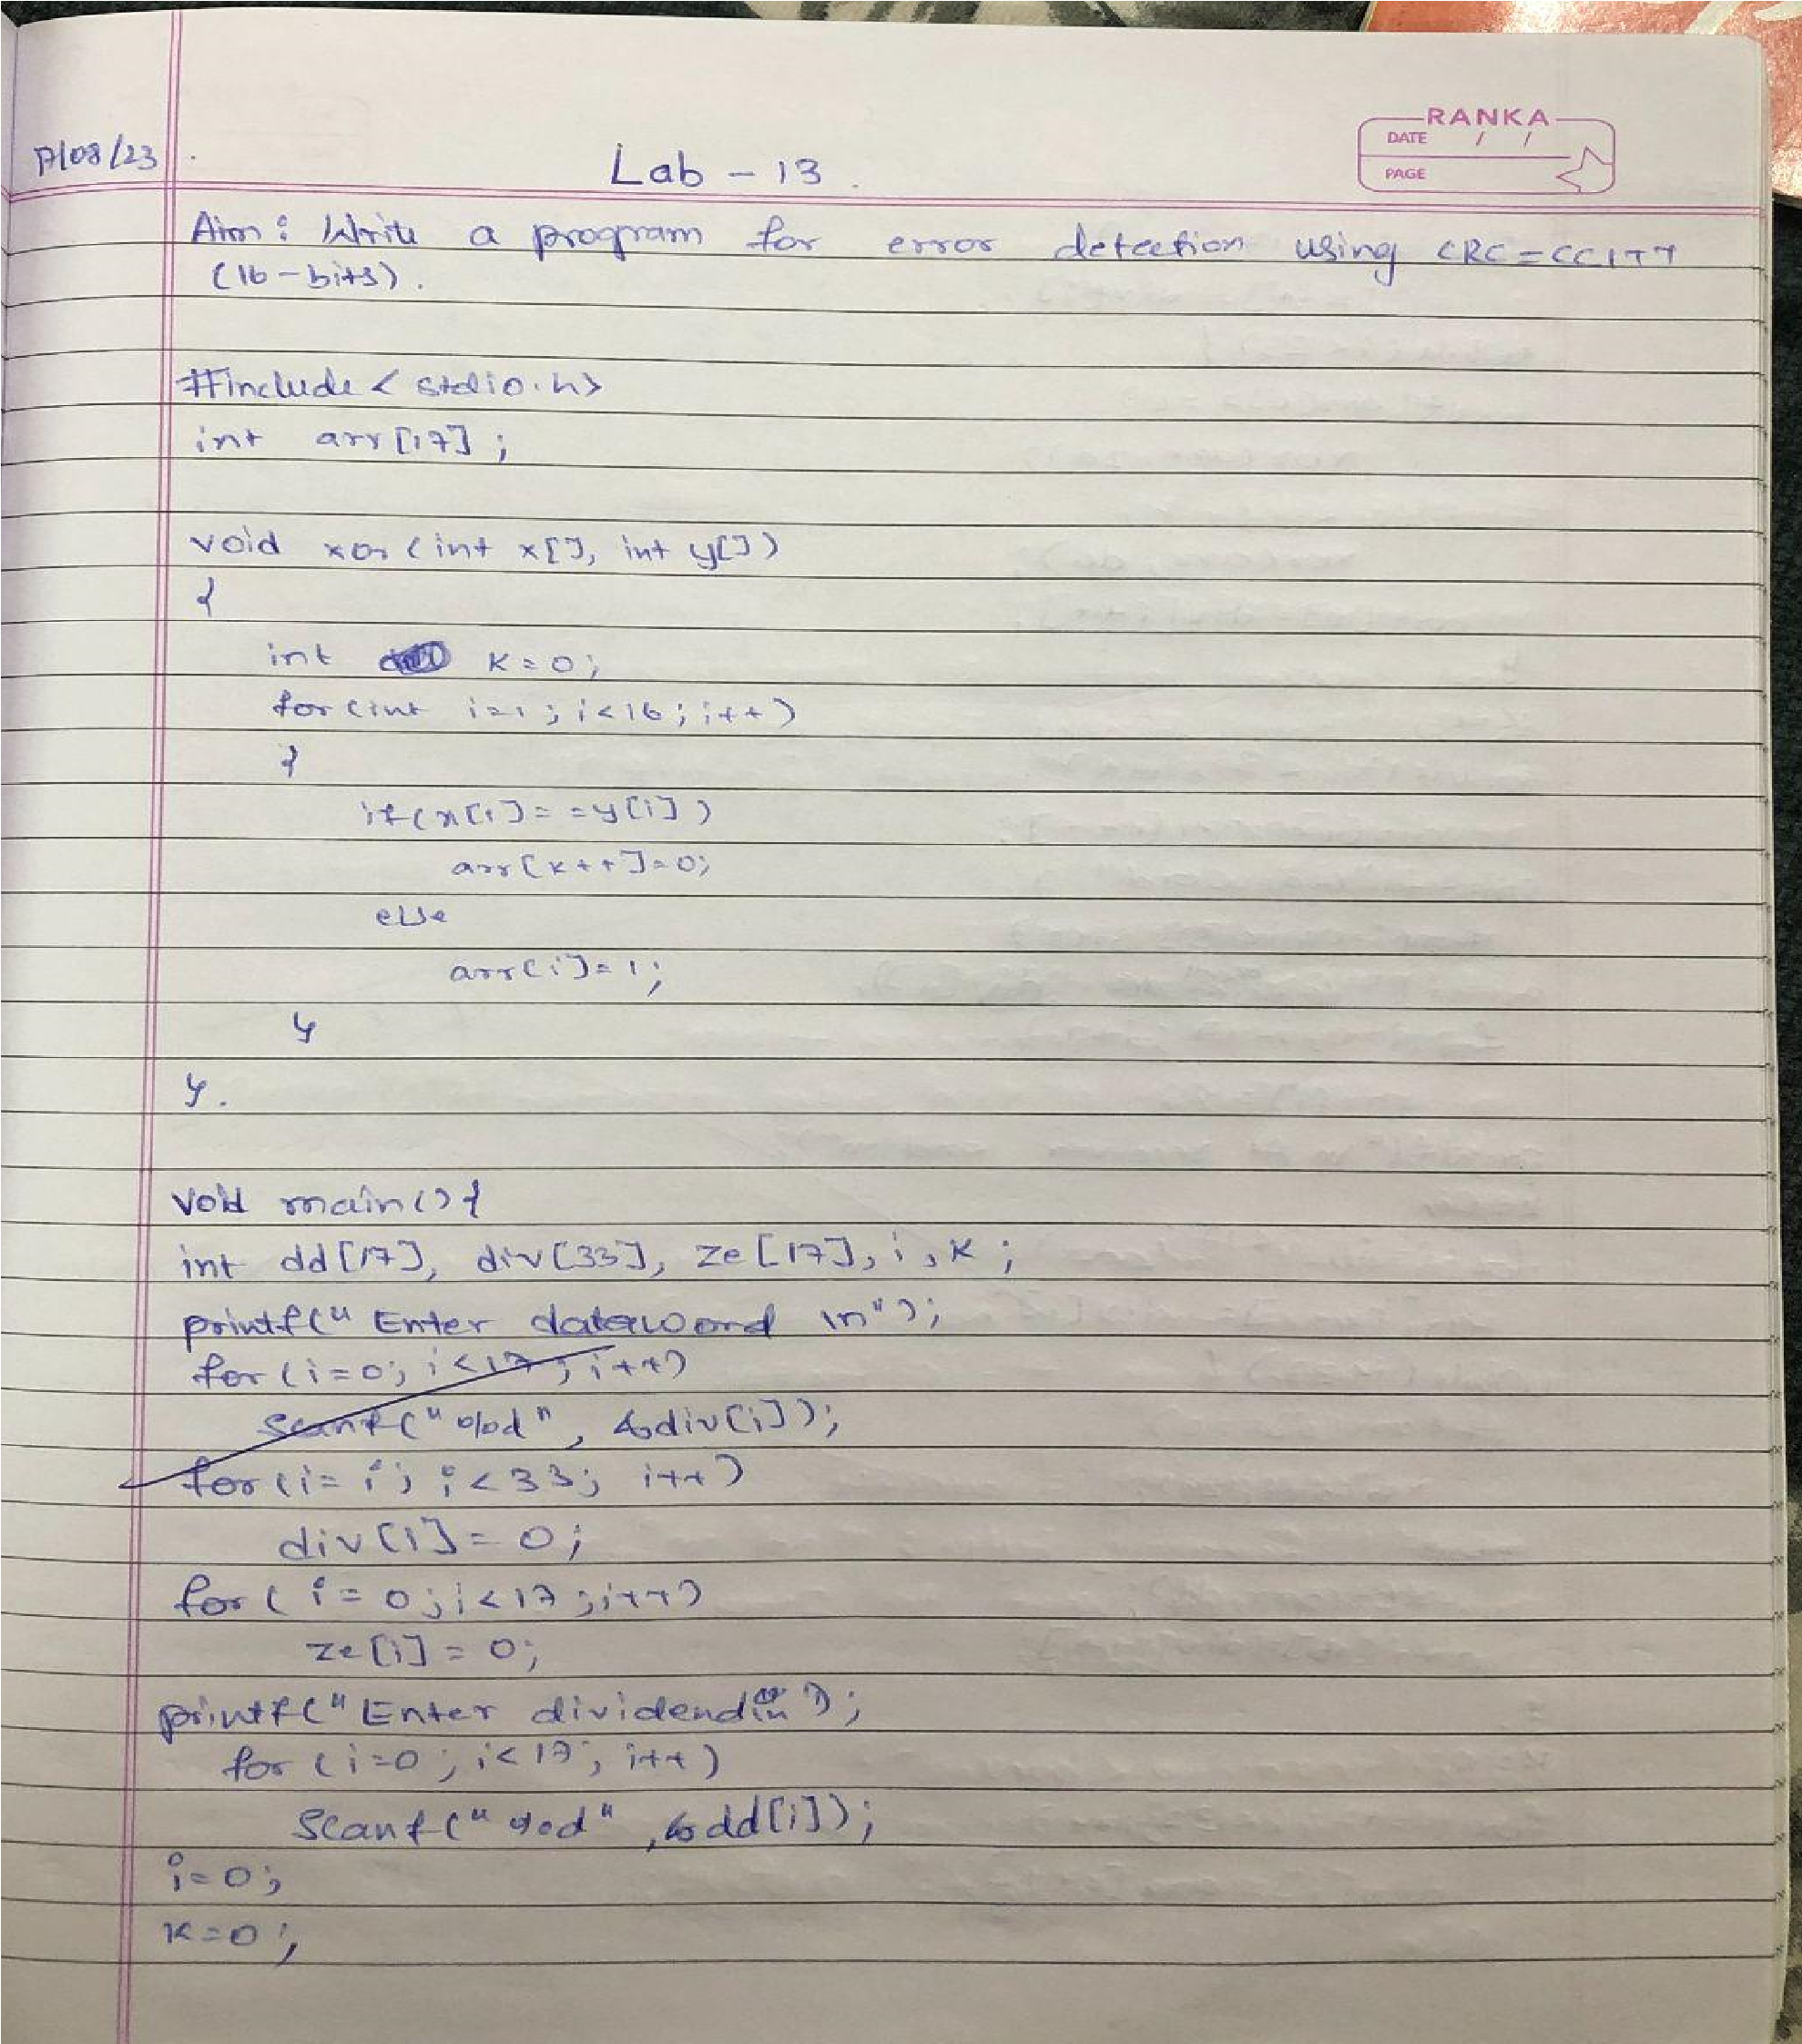 RANKA
DATE / /
PAGE
/08/23
Lab - 13.
Aim: Write a program for error detection using CRC=CCITT
(16-bits).
#include < stdio.h>
int arr[17];
void xor (int x[], int y[])
{
int k=0;
for(int i=1; i<16; i++)
{
if(x[i]==y[i])
arr[k++]=0;
else
arr[i]=1;
}
}.
void main(){
int dd[17], div[33], ze[17], i, k;
printf("Enter dataword \n");
for(i=0; i<17; i++)
scanf("%d", &div[i]);
for(i=i; i<33; i++)
div[i]=0;
for(i=0; i<17; i++)
ze[i]=0;
printf("Enter dividend\n");
for(i=0; i<17; i++)
scanf("%d", &dd[i]);
i=0;
k=0;